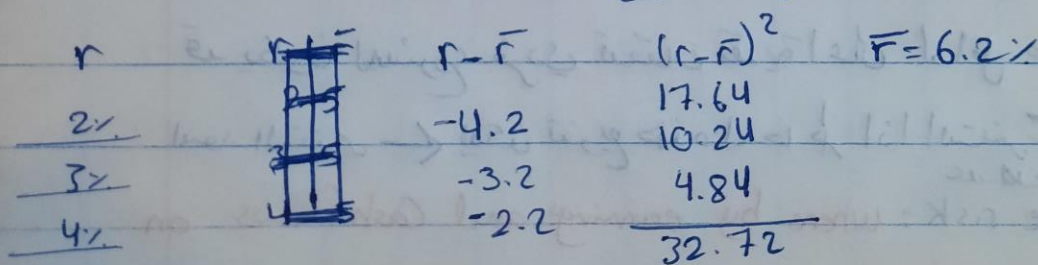 r r - r̄ (r-r̄)² r̄ = 6.2%
2% -4.2 17.64
3% -3.2 10.24
4% -2.2 4.84
32.72